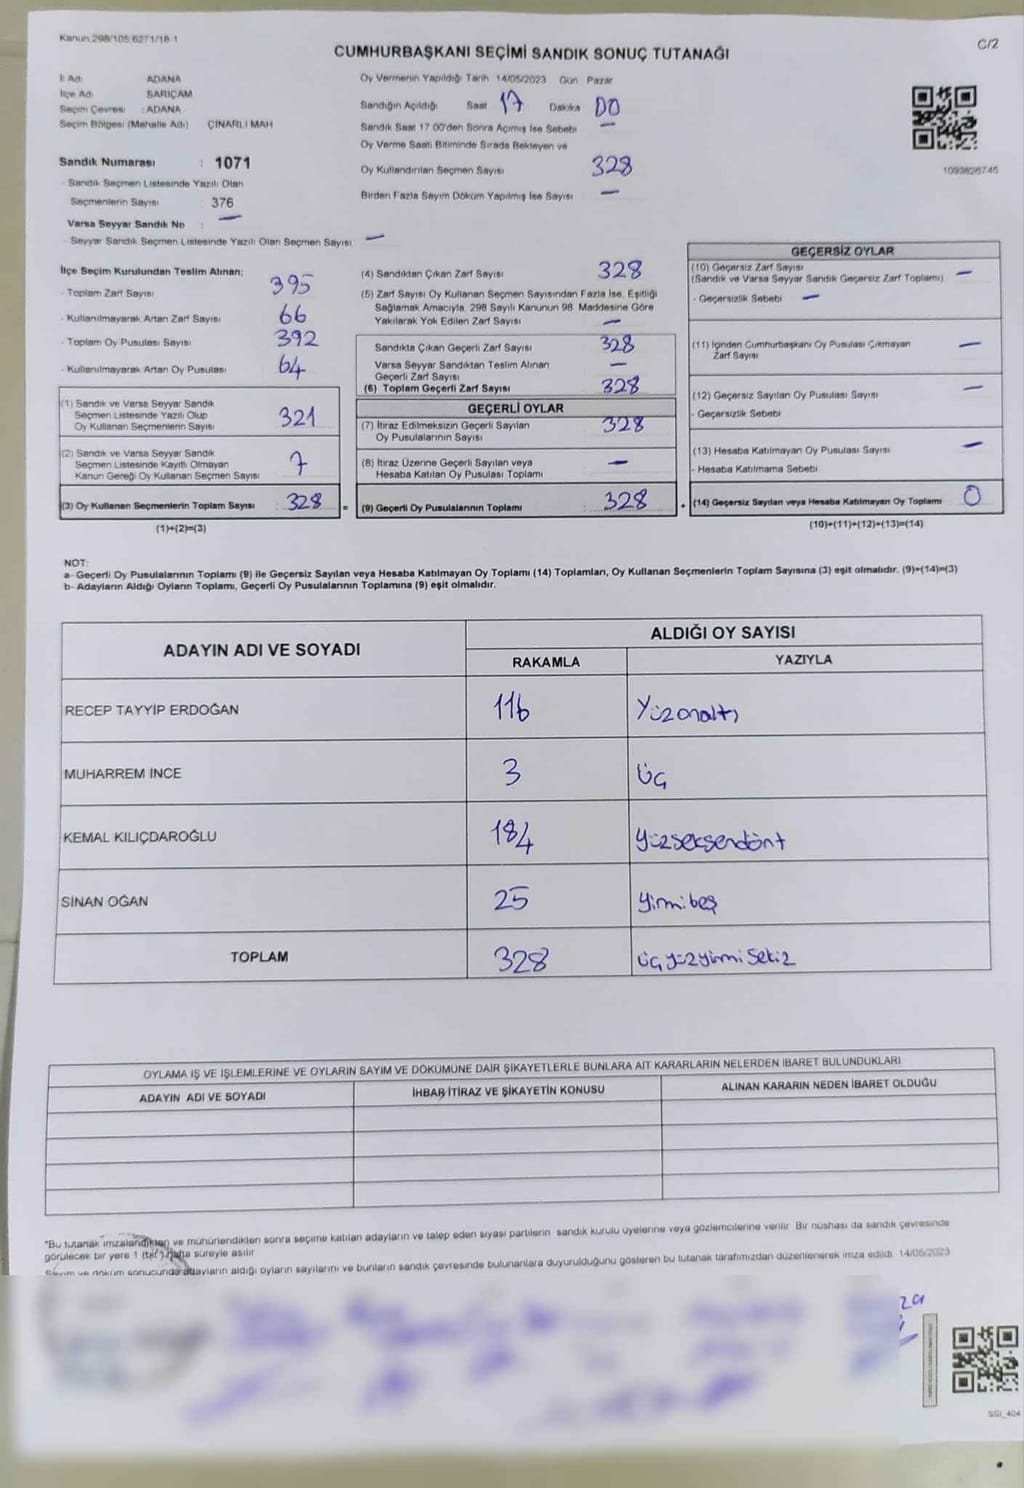 Kanun 298/105 6271/16-1
C/2
CUMHURBAŞKANI SEÇİMİ SANDIK SONUÇ TUTANAĞI
İl Adı ADANA
İlçe Adı SARIÇAM
Seçim Çevresi : ADANA
Seçim Bölgesi (Mahalle Adı) ÇINARLI MAH
Sandık Numarası : 1071
- Sandık Seçmen Listesinde Yazılı Olan
Seçmenlerin Sayısı : 376
Varsa Seyyar Sandık No : —
- Seyyar Sandık Seçmen Listesinde Yazılı Olan Seçmen Sayısı —
Oy Vermenin Yapıldığı Tarih 14/05/2023 Gün Pazar
Sandığın Açıldığı Saat 17 Dakika 00
Sandık Saat 17 00'den Sonra Açımış İse Sebebi —
Oy Verme Saati Bitiminde Sırada Bekleyen ve
Oy Kullandırılan Seçmen Sayısı 328
Birden Fazla Sayım Döküm Yapılmış İse Sayısı —
1093826746
İlçe Seçim Kurulundan Teslim Alınan;
- Toplam Zarf Sayısı 395
- Kullanılmayarak Artan Zarf Sayısı 66
- Toplam Oy Pusulası Sayısı 392
- Kullanılmayarak Artan Oy Pusulası 64
(1) Sandık ve Varsa Seyyar Sandık
Seçmen Listesinde Yazılı Olup
Oy Kullanan Seçmenlerin Sayısı 321
(2) Sandık ve Varsa Seyyar Sandık
Seçmen Listesinde Kayıtlı Olmayan
Kanun Gereği Oy Kullanan Seçmen Sayısı 7
(3) Oy Kullanan Seçmenlerin Toplam Sayısı : 328 =
(1)+(2)=(3)
(4) Sandıktan Çıkan Zarf Sayısı 328
(5) Zarf Sayısı Oy Kullanan Seçmen Sayısından Fazla İse, Eşitliği
Sağlamak Amacıyla, 298 Sayılı Kanunun 98. Maddesine Göre
Yakılarak Yok Edilen Zarf Sayısı —
Sandıkta Çıkan Geçerli Zarf Sayısı 328
Varsa Seyyar Sandıktan Teslim Alınan
Geçerli Zarf Sayısı —
(6) Toplam Geçerli Zarf Sayısı 328
GEÇERLİ OYLAR
(7) İtiraz Edilmeksizin Geçerli Sayılan
Oy Pusulalarının Sayısı 328
(8) İtiraz Üzerine Geçerli Sayılan veya
Hesaba Katılan Oy Pusulası Toplamı —
(9) Geçerli Oy Pusulalarının Toplamı : 328 +
GEÇERSİZ OYLAR
(10) Geçersiz Zarf Sayısı
(Sandık ve Varsa Seyyar Sandık Geçersiz Zarf Toplamı) —
- Geçersizlik Sebebi —
(11) İçinden Cumhurbaşkanı Oy Pusulası Çıkmayan
Zarf Sayısı —
(12) Geçersiz Sayılan Oy Pusulası Sayısı —
- Geçersizlik Sebebi
(13) Hesaba Katılmayan Oy Pusulası Sayısı —
- Hesaba Katılmama Sebebi
(14) Geçersiz Sayılan veya Hesaba Katılmayan Oy Toplamı 0
(10)+(11)+(12)+(13)=(14)
NOT:
a- Geçerli Oy Pusulalarının Toplamı (9) ile Geçersiz Sayılan veya Hesaba Katılmayan Oy Toplamı (14) Toplamları, Oy Kullanan Seçmenlerin Toplam Sayısına (3) eşit olmalıdır. (9)+(14)=(3)
b- Adayların Aldığı Oyların Toplamı, Geçerli Oy Pusulalarının Toplamına (9) eşit olmalıdır.
ADAYIN ADI VE SOYADI
ALDIĞI OY SAYISI
RAKAMLA YAZIYLA
RECEP TAYYİP ERDOĞAN 116 Yüzonaltı
MUHARREM İNCE 3 üç
KEMAL KILIÇDAROĞLU 184 yüzseksendört
SİNAN OĞAN 25 yirmibeş
TOPLAM 328 üçyüzyirmi sekiz
OYLAMA İŞ VE İŞLEMLERİNE VE OYLARIN SAYIM VE DÖKÜMÜNE DAİR ŞİKAYETLERLE BUNLARA AİT KARARLARIN NELERDEN İBARET BULUNDUKLARI
ADAYIN ADI VE SOYADI İHBAR,İTİRAZ VE ŞİKAYETİN KONUSU ALINAN KARARIN NEDEN İBARET OLDUĞU
*Bu tutanak imzalandıktan ve mühürlendikten sonra seçime katılan adayların ve talep eden siyasi partilerin sandık kurulu üyelerine veya gözlemcilerine verilir. Bir nüshası da sandık çevresinde
görülecek bir yere 1 (bir) hafta süreyle asılır
Sayım ve döküm sonucunda adayların aldığı oyların sayılarını ve bunların sandık çevresinde bulunanlara duyurulduğunu gösteren bu tutanak tarafımızdan düzenlenerek imza edildi. 14/05/2023
SSI_404